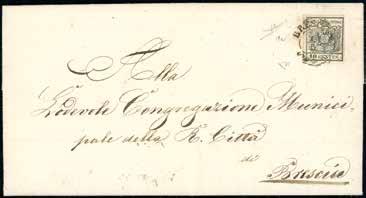 Alla
Lodevole Congregazione Munici
pale della R. Città
di
Brescia